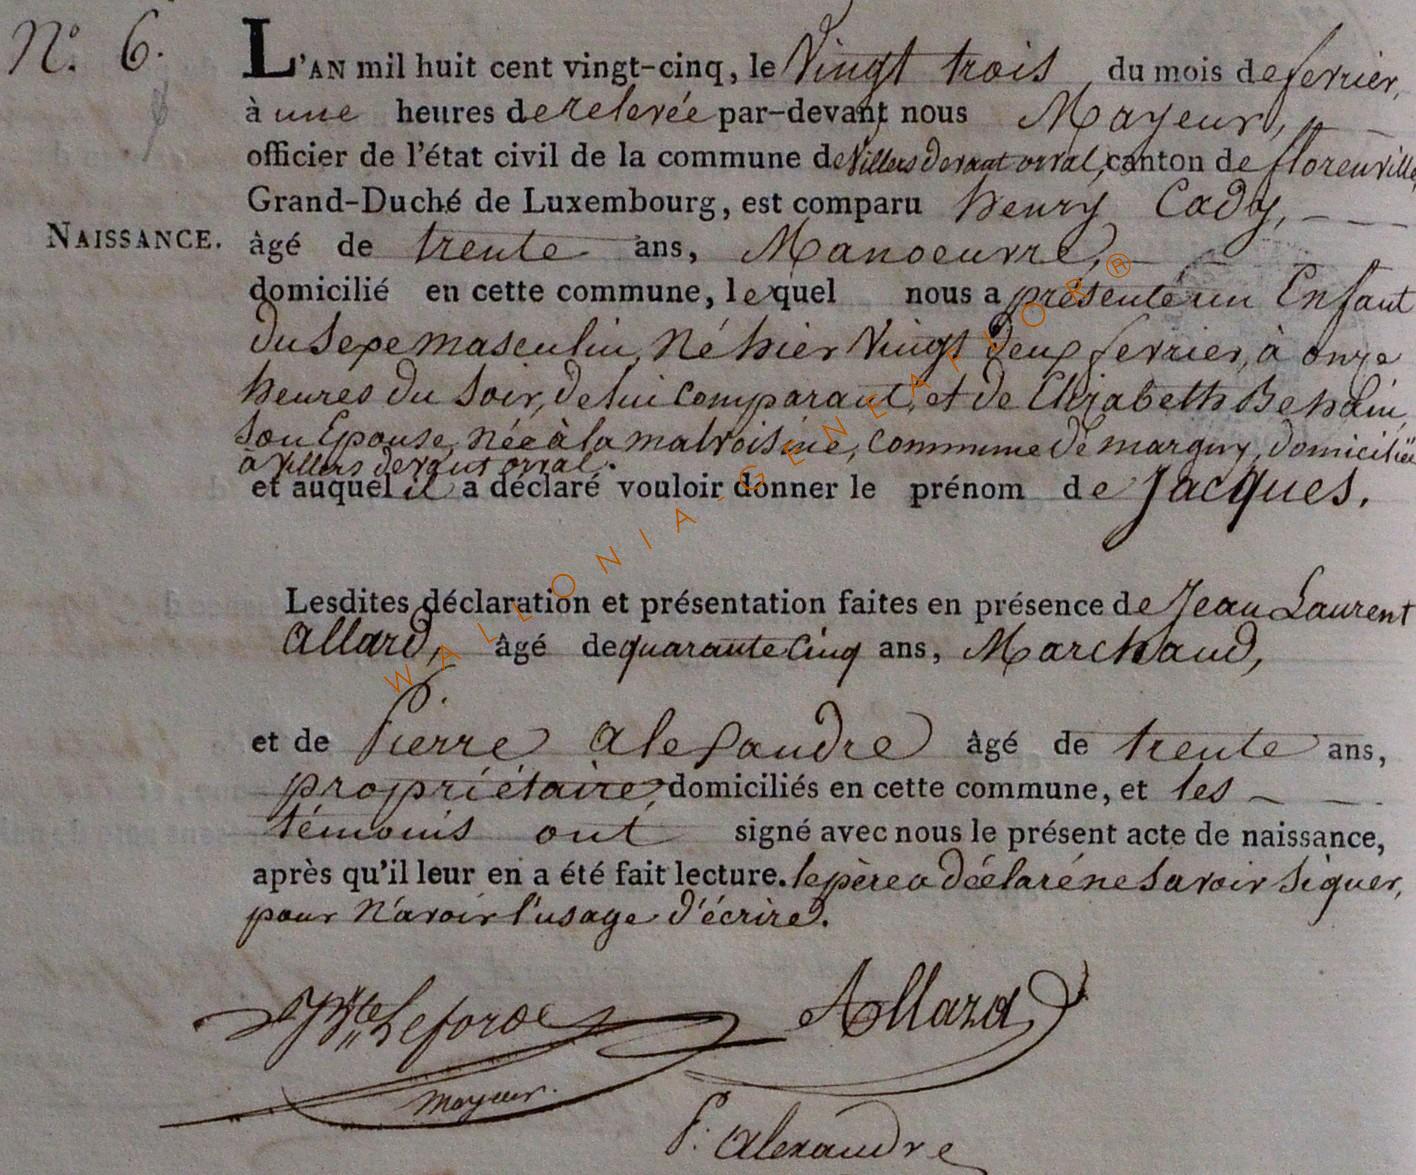 N.° 6.
L'AN mil huit cent vingt-cinq, le Vingt trois du mois de fevrier,
à une heures de relevée par-devant nous Mayeur,
officier de l'état civil de la commune de Villers devant orval, canton de florenville,
Grand-Duché de Luxembourg, est comparu henry Cady,
NAISSANCE. âgé de trente ans, Manoeuvre,
domicilié en cette commune, lequel nous a présenté un Enfant
du Sexe masculin, Né hier Vingt deux fevrier, à onze
heures du Soir, de lui comparant, et de Elizabeth Behain
Son Epouse, née à la malvoisine, commune de margny, domiciliée
à Villers devant orval.
et auquel il a déclaré vouloir donner le prénom de Jacques.
Lesdites déclaration et présentation faites en présence de Jean Laurent
allard, âgé de quarante Cinq ans, Marchand,
et de Pierre alexandre âgé de trente ans,
propriétaire, domiciliés en cette commune, et les
témoins ont signé avec nous le présent acte de naissance,
après qu'il leur en a été fait lecture. le père a déclaré ne Savoir Signer,
pour N'avoir l'usage d'écrire.
Allard
mayeur.
P. alexandre
WALLONIA-GENEAFLOR®